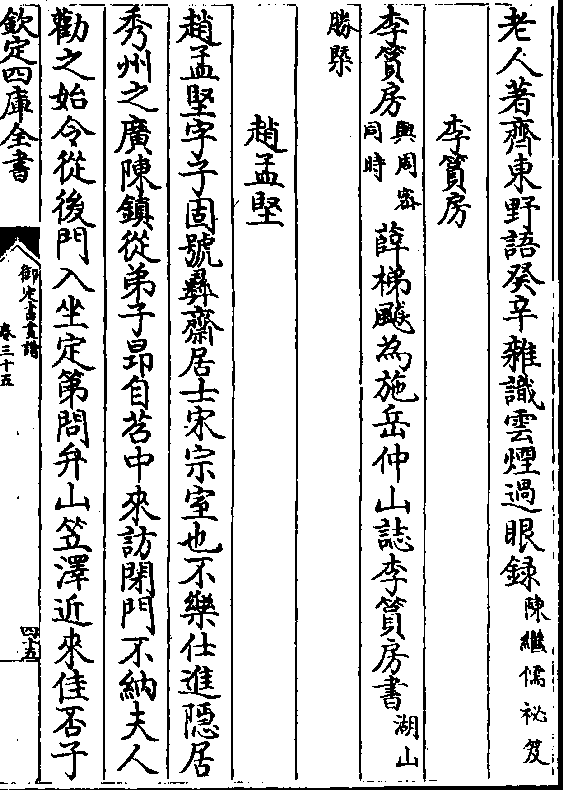 老人著齊東野語癸辛雜識雲煙過眼録陳繼儒祕笈
李篔房
李篔房與周密同時薛梯飈為施岳仲山誌李篔房書湖山
勝槩
趙孟堅
趙孟堅字子固號彝齋居士宋宗室也不樂仕進隱居
秀州之廣陳鎮從弟子昂自苕中來訪閉門不納夫人
勸之始令從後門入坐定第問弁山笠澤近來佳否子
欽定四庫全書
御定書畫譜
卷三十五
四五